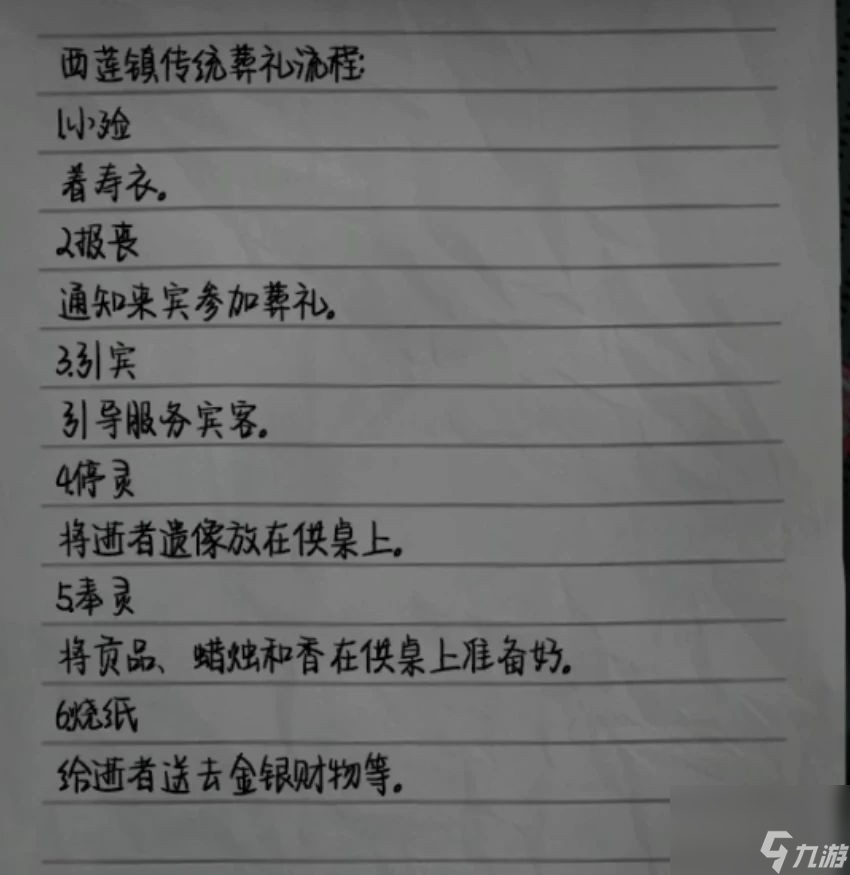 西莲镇传统葬礼流程:
1.小殓
着寿衣。
2.报丧
通知来宾参加葬礼。
3.引宾
引导服务宾客。
4.停灵
将逝者遗像放在供桌上。
5.奉灵
将贡品、蜡烛和香在供桌上准备好。
6.烧纸
给逝者送去金银财物等。
九游